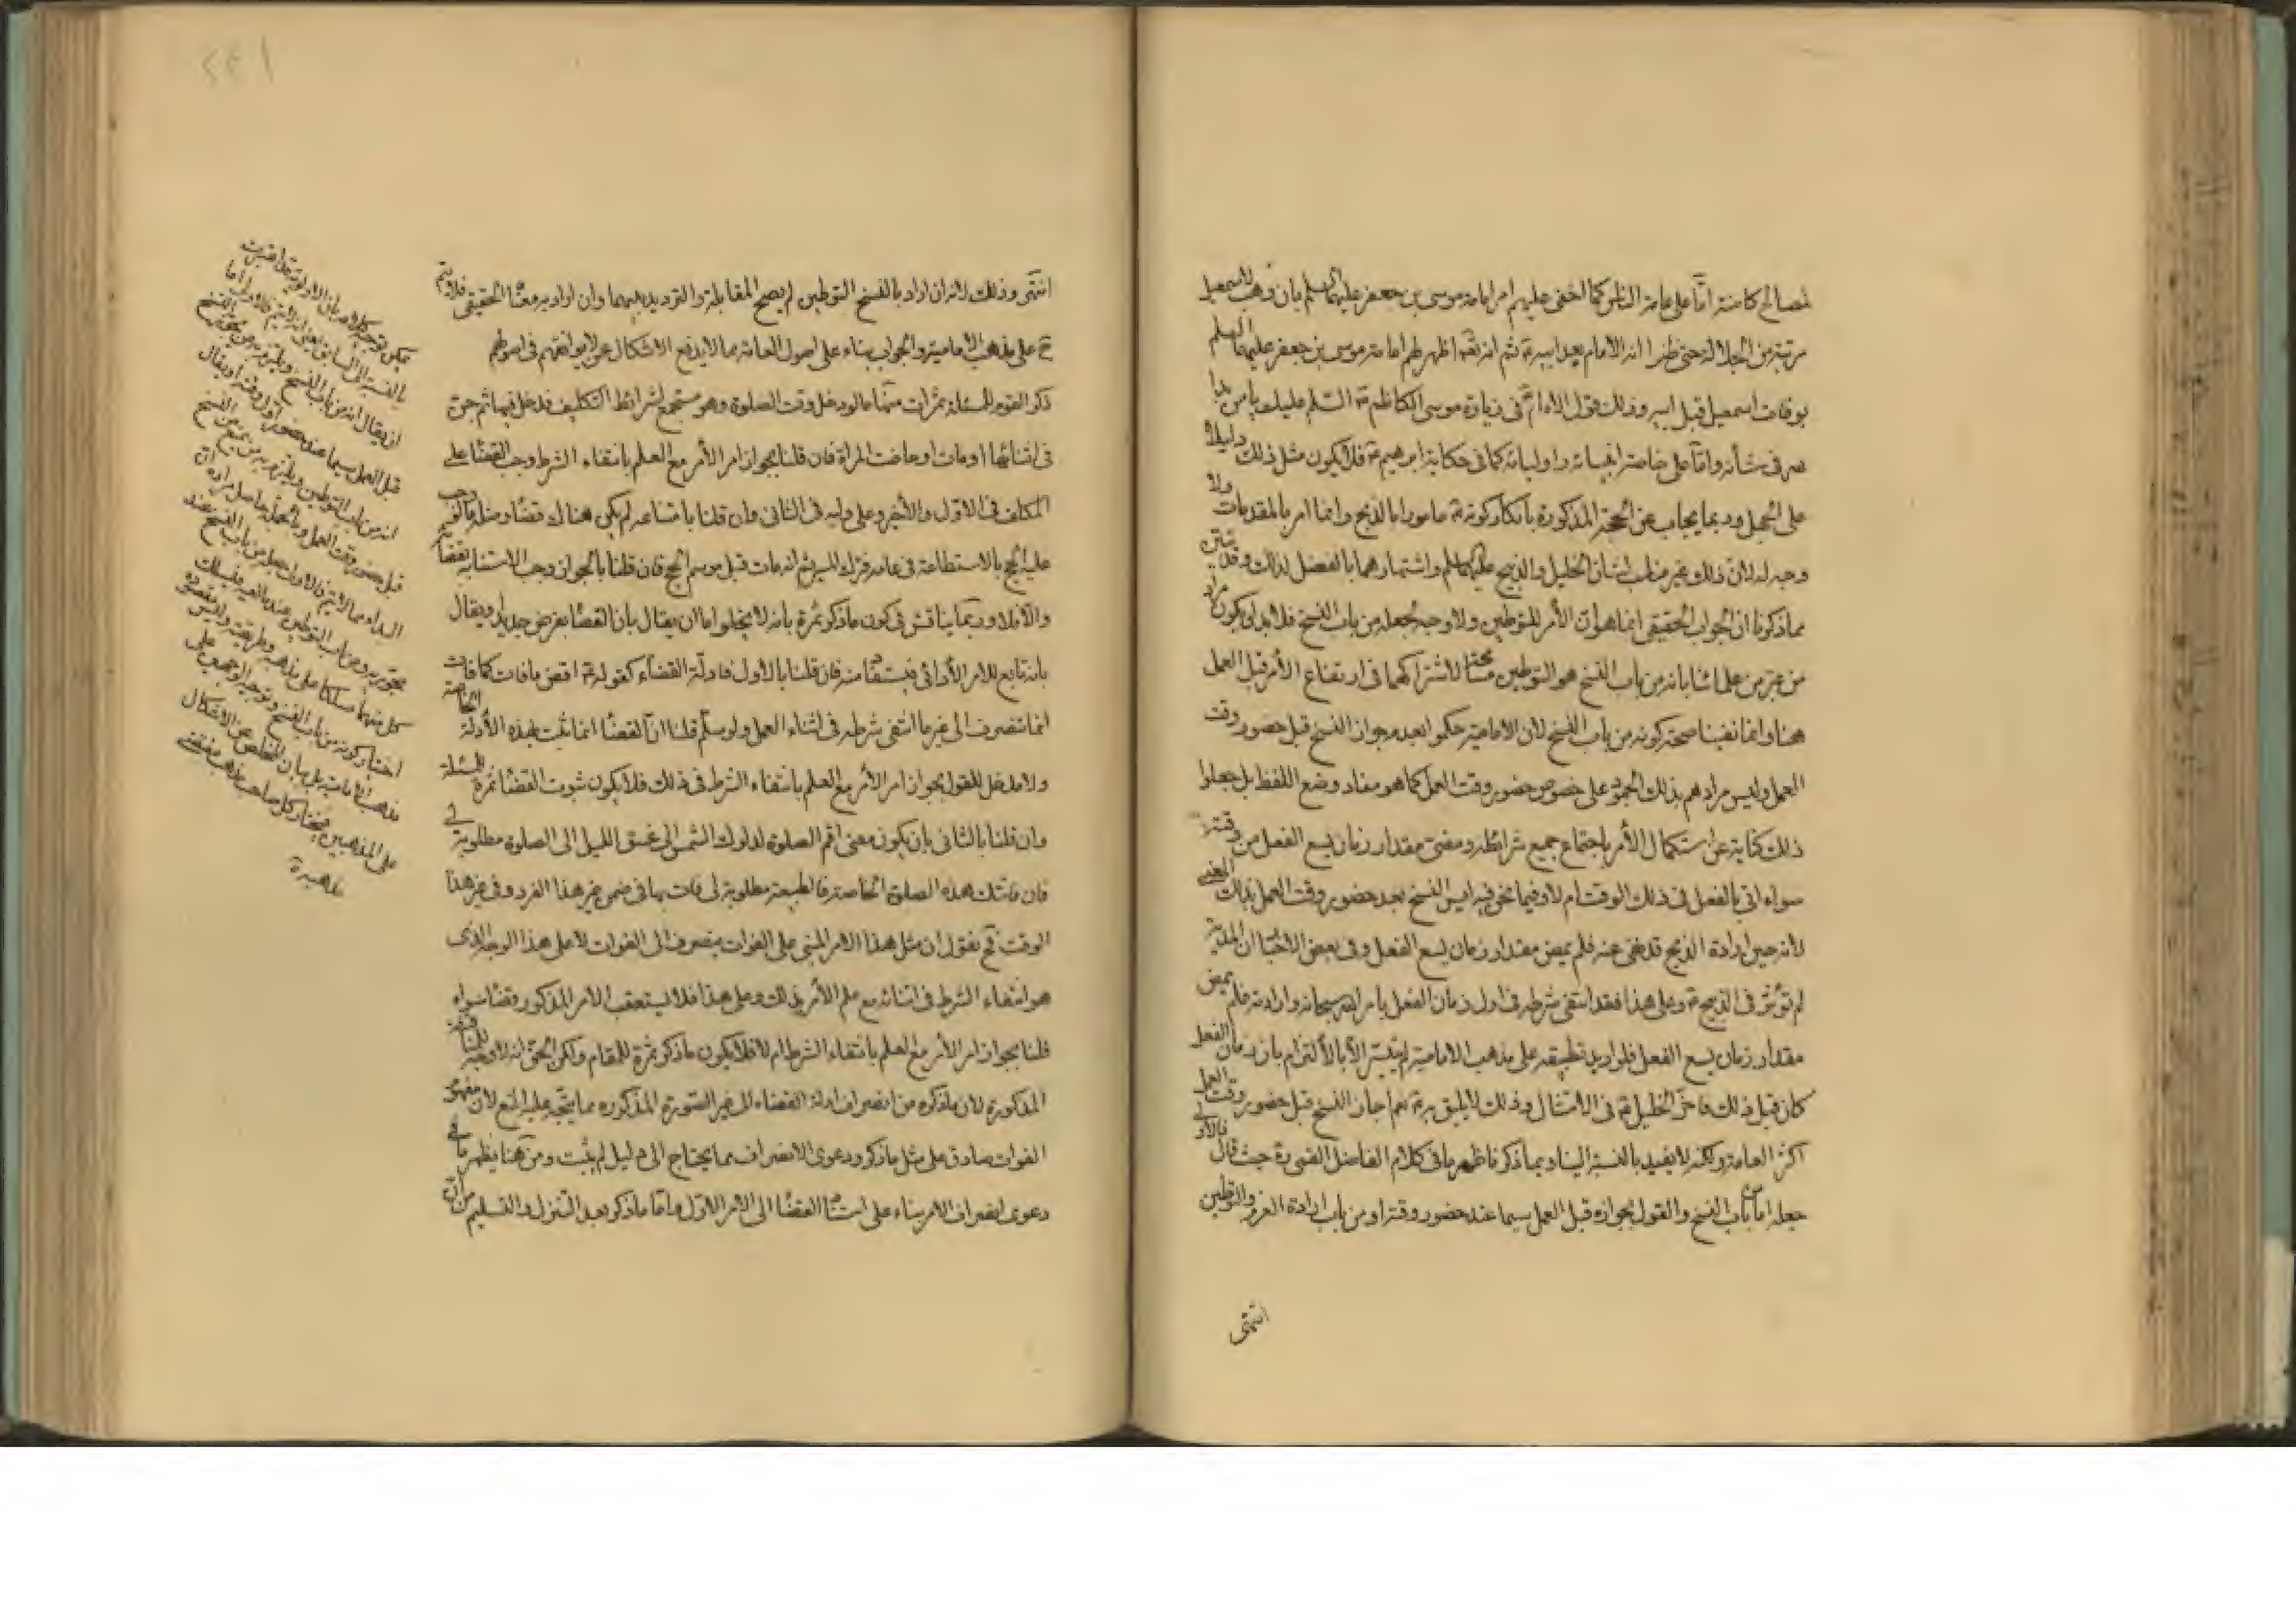 لمصالح كامنة امّا على عامة الناس كما اخفى عليهم امر امامة موسى بن جعفر عليهما السلم بان وهب لاسمعيل
مرتبة من الجلالة حتى ظنوا انه الامام بعد ابيه ثم انه تعالى اظهر لهم امامة موسى بن جعفر عليهما السلم
بوفات اسمعيل قبل ابيه وذلك قول الامام في زيارة موسى الكاظم السّلم عليك يا من بدا
في شأنه وامّا على خاصة انبيائه واوليائه كما في حكاية ابرهيم فلا يكون مثل ذلك دليلا
على الجهل وربما يجاب عن الحجة المذكورة بانكار كونه مامورا بالذبح وانما امر بالمقدمات ولا
وجه له لان ذلك غير مناسب لشان الخليل والذبيح عليهما السلم واشتهارهما بالفضل لذلك وقد تبيّن
مما ذكرنا ان الجواب الحقيقي انما هو انّ الأمر للتوطين ولا وجه لجعله من باب النسخ فلا بد ان يكون مراد
من عبّر من علمائنا بانه من باب النسخ هو التوطين لاشتراكهما في ارتفاع الأمر قبل العمل
هنا وانما نفينا صحة كونه من باب النسخ لان الامامية حكموا بعدم جواز النسخ قبل حضور وقت
العمل وليس مرادهم بذلك الجمود على خصوص حضور وقت العمل كما هو مفاد وضع اللفظ بل جعلوا
ذلك كناية عن استكمال الأمر باجتماع جميع شرائطه ومضىّ مقدار زمان يسع الفعل من وقته
سواء اتى بالفعل في ذلك الوقت ام لا وفيما نحن فيه ليس النسخ بعد حضور وقت العمل بذلك المعنى
لانه حين ارادة الذبح قد نهى عنه فلم يمض مقدار زمان يسع الفعل وفى بعض الاخبار ان المدية
لم تؤثر في الذبح وعلى هذا فقد انتفى شرطه في اول زمان الفعل بامر الله سبحانه وارادته فلم يمض
مقدار زمان يسع الفعل فلو اريد تطبيقه على مذهب الامامية لم يتيسّر الاّ بالالتزام بان زمان الفعل
كان قبل ذلك فاخّر الخليل في الامتثال وذلك لا يليق به نعم اجاز النسخ قبل حضور وقت العمل
اكثر العامة ولكنه لا يفيد بالنسبة الينا وبما ذكر ناظهر ما في كلام الفاضل القمى ره حيث قال فالاولى
جعله اما من باب النسخ والقول بجوازه قبل العمل سيما عند حضور وقته او من باب ارادة العزم والتوطين
انتهى
انتهى وذلك لانه ان اراد بالنسخ التوطين لم يصح المقابلة والترديد بينهما وان اراد به معناه الحقيقي فلا يتم
على مذهب الامامية والجواب بناء على اصول العامة مما لا يدفع الاشكال عمن لا يوافقهم في اصولهم
ذكر القوم للمسئلة ثمرات منها ما لو دخل وقت الصلوة وهو مستجمع لشرائط التكليف فدخل فيها ثم جنّ
في اثنائها او مات او حاضت المراة فان قلنا بجواز امر الأمر مع العلم بانتفاء الشرط وجب القضاء على
المكلف في الاوّل والأخير وعلى وليه في الثاني وان قلنا بامتناعه لم يكن هناك قضاء ومثله ما لو وجب
عليه الحج بالاستطاعة في عامه فترك المسير ثم انه مات قبل موسم الحج فان قلنا بالجواز وجب الاستنابة
والاّ فلا وربّما يناقش في كون ما ذكر ثمرة بانه لا يخلو اما ان يقال بان القضاء بفرض جديد او يقال
بانه تابع للامر الأدائي فيستفاد منه فان قلنا بالاول فادلة القضاء كقوله اقض ما فات كما فات
انما تنصرف الى غير ما انتفى شرطه في اثناء العمل ولو سلّم قلنا انّ القضاء انما ثبت بهذه الأدلة الخاصة
ولا مدخل للقول بجواز امر الأمر مع العلم بانتفاء الشرط في ذلك فلا يكون ثبوت القضاء ثمرة للمسئلة
وان قلنا بالثاني بان يكون معنى اقم الصلوة لدلوك الشمس الى غسق الليل الى الصلوة مطلوبة لى
فان فاتتك هذه الصلوة الخاصة فالطبيعة مطلوبة لى فات بها في ضمن غير هذا الفرد وفى غير هذا
الوقت فح نقول ان مثل هذا الامر المبنى على الفوات ينصرف الى الفوات لا على هذا الوجه الذى
هو انتفاء الشرط في اثنائه مع علم الأمر بذلك وعلى هذا فلا يستعقب الامر المذكور قضاء سواء
قلنا بجواز امر الأمر مع العلم بانتفاء الشرط ام لا فلا يكون ما ذكر ثمرة للمقام ولكن الحق انه لا وجه للمناقشة
المذكورة لان ما ذكره من انصراف ادلة القضاء الى غير الصّورة المذكورة مما يتجه عليه المنع لان مفهوم
الفوات صادق على مثل ما ذكر ودعوى الانصراف مما يحتاج الى دليل لم يثبت ومن هنا يظهر ما في
دعوى انصراف الامر بناء على استناد القضاء الى الامر الاوّل وامّا ما ذكر بعد التنزل والتسليم من ان
يمكن توجيه كلامه بان الاولوية
قبل العمل سيما عند حضور وقته او يقال
انه من باب التوطين
كل منهما مسلكا على مذهبه وطريقته وليس مقصوده
اختيار كونه من باب النسخ وتوجيه الوجهين على
مذهب الامامية بل بيان التخلص عن الاشكال
على المذهبين